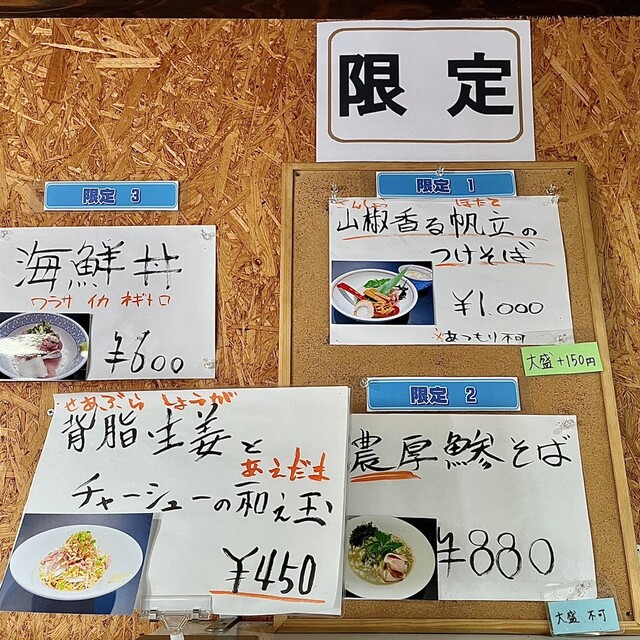 限定
限定 1
さんしょう ほたて
山椒香る帆立の
つけそば
¥1.000
※あつもり不可
大盛+150円
限定 2
濃厚鯵そば
¥880
大盛 不可
限定 3
海鮮丼
ワラサ イカ ネギトロ
¥600
せあぶら しょうが
背脂生姜と
あえだま
チャーシューの和え玉
¥450